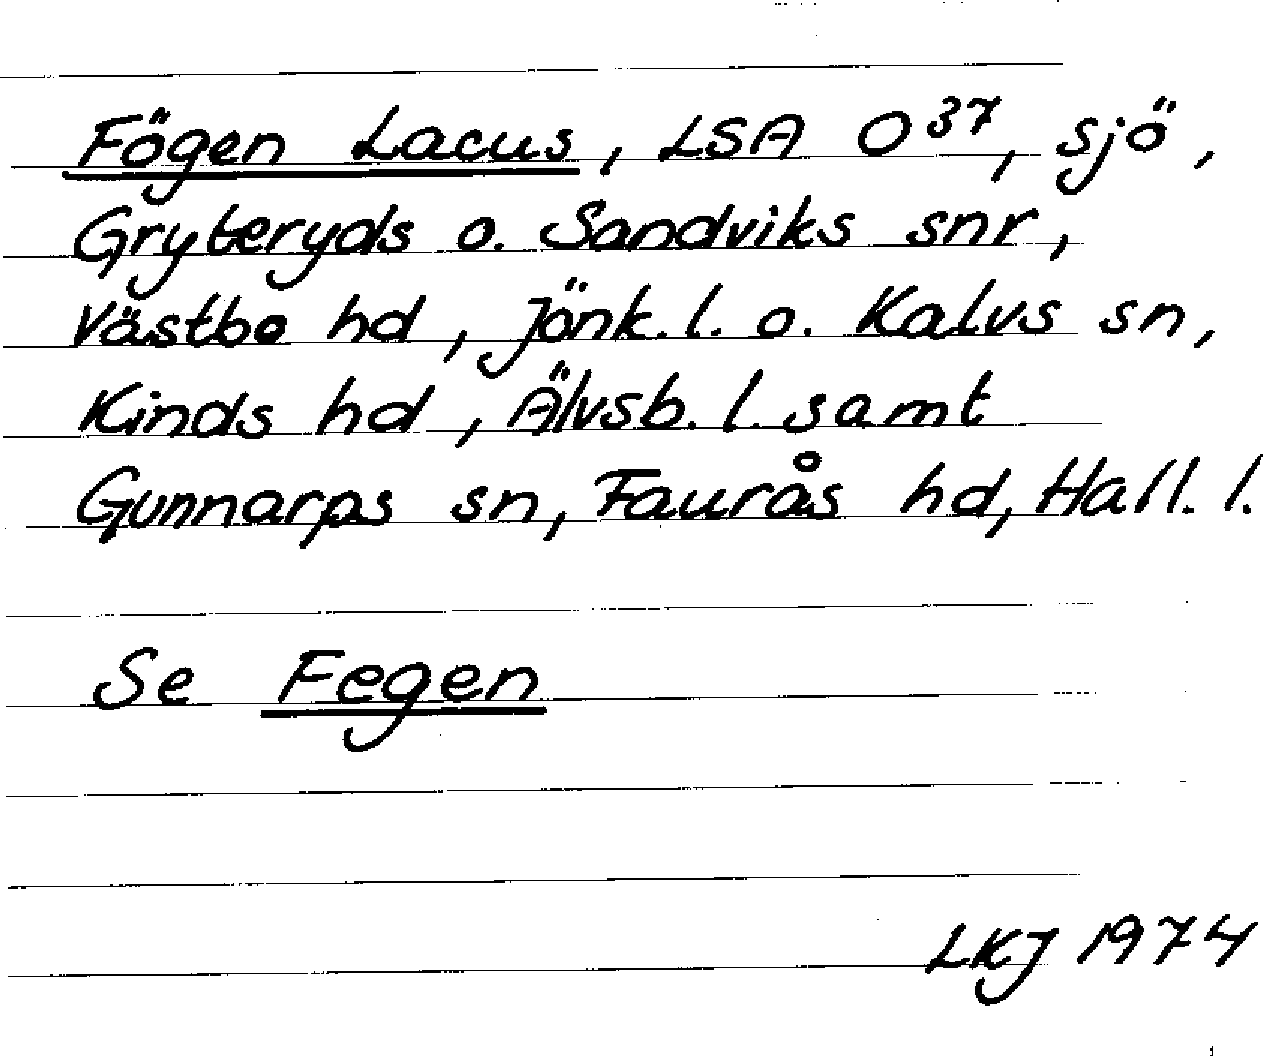 Fögen Lacus, LSA O³⁷, sjö,
Gryteryds o. Sandviks snr,
Västbo hd, Jönk. l. o. Kalvs sn,
Kinds hd, Älvsb. l. samt
Gunnarps sn, Faurås hd, Hall. l.
Se Fegen
LKJ 1974